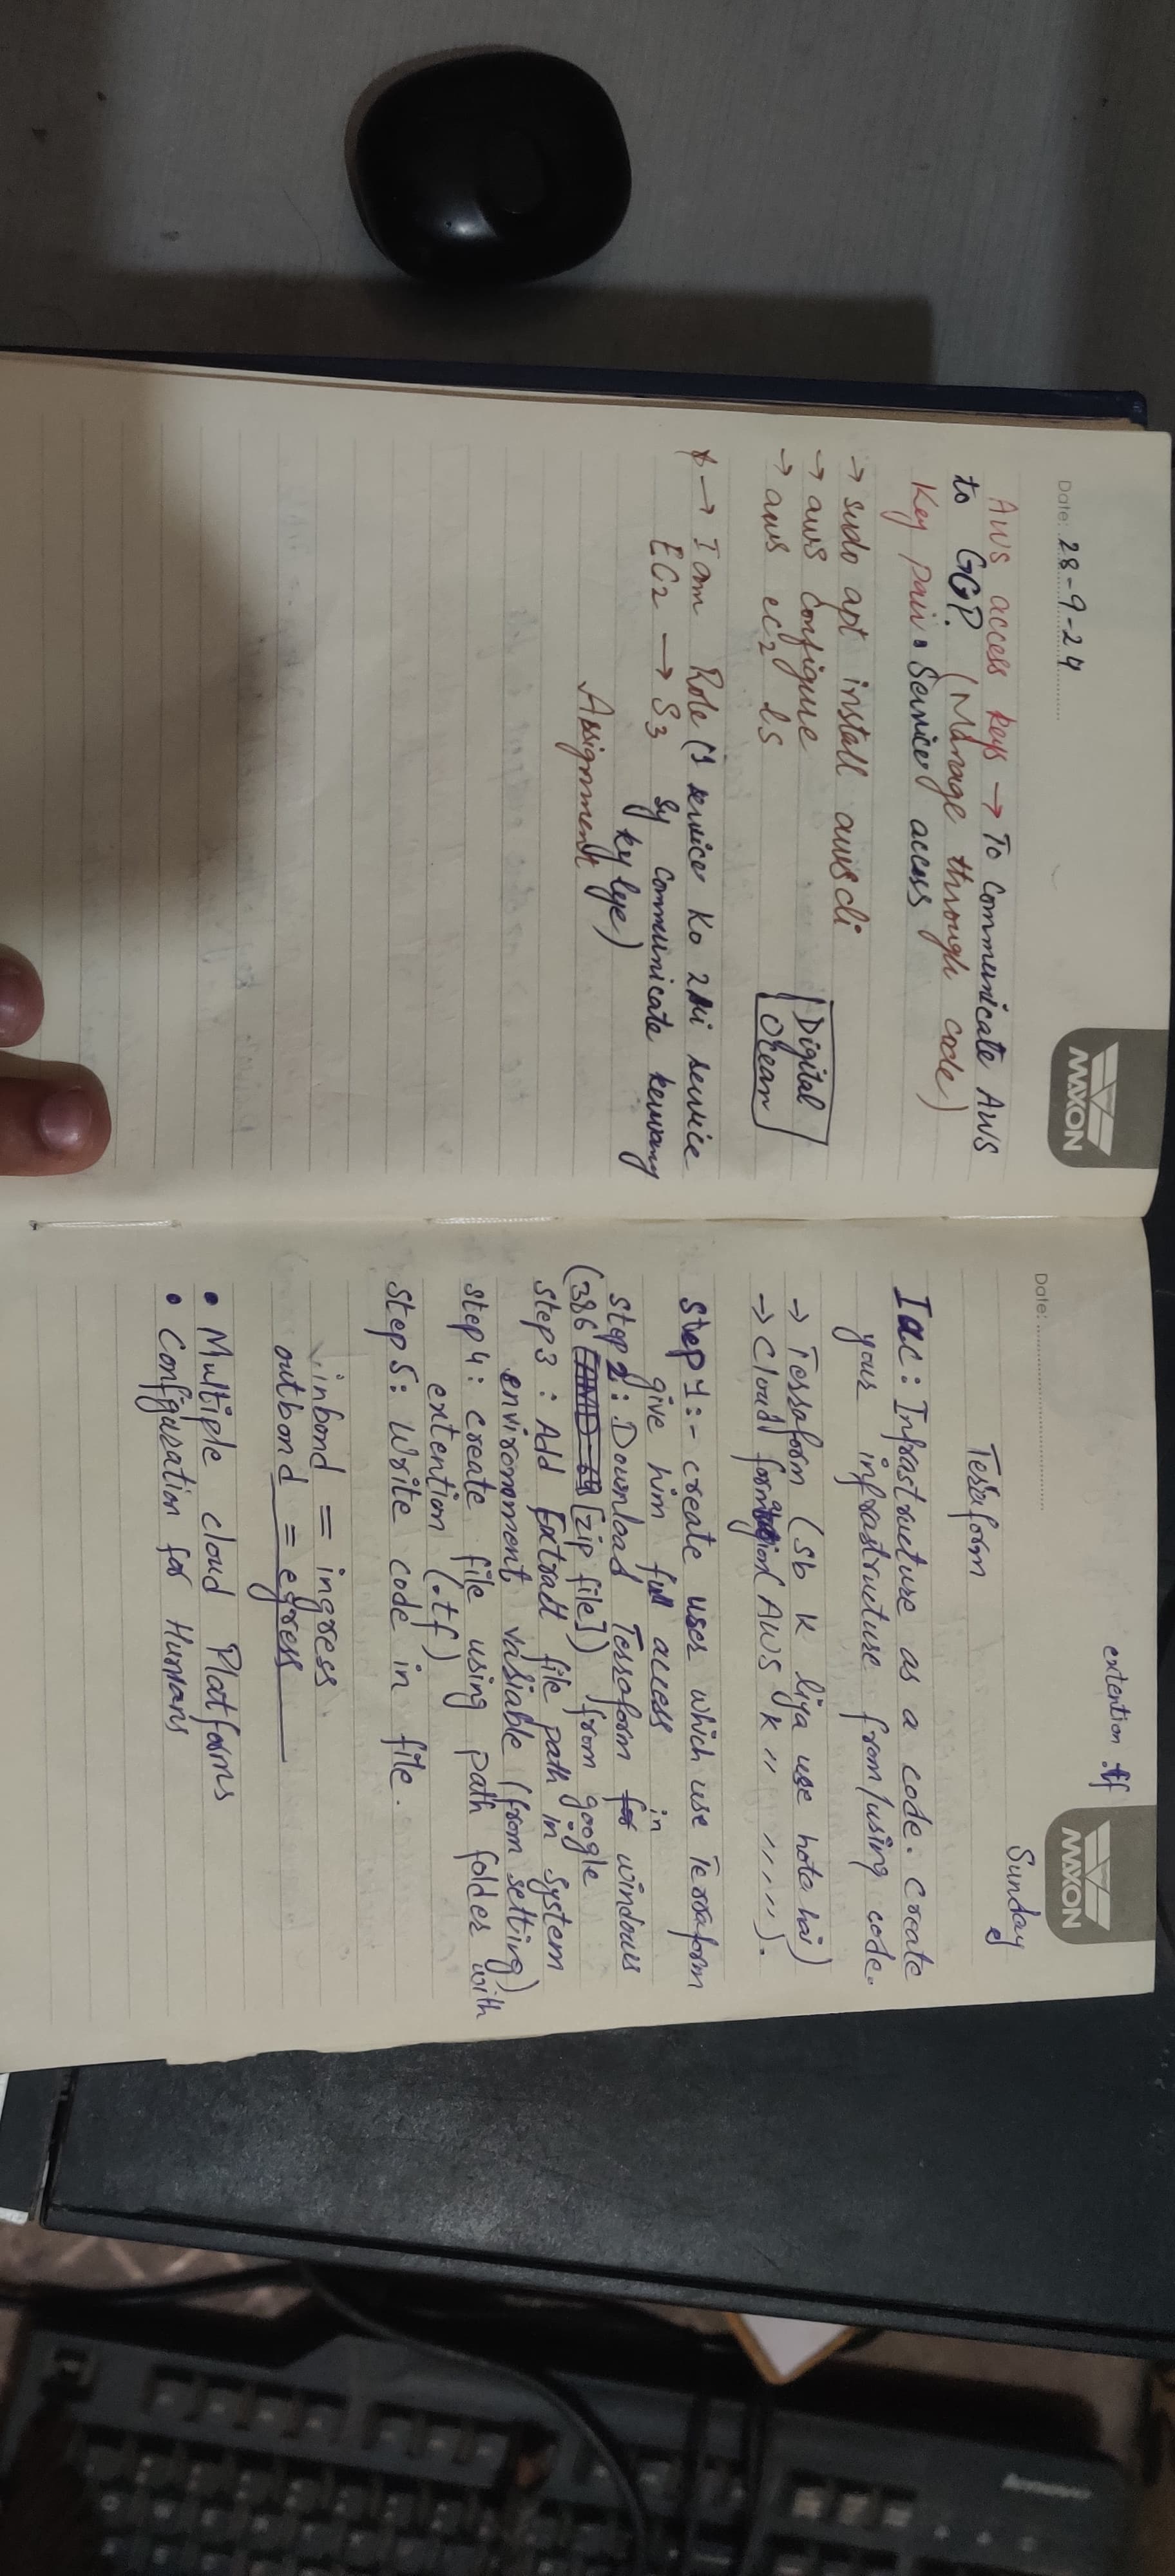 Date: 28-9-24
MAXON
AWS access keys → To communicate AWS
to GCP. (Manage through code)
Key pair. Service access
→ sudo apt install awscli
→ aws configure
→ aws ec2 ls
Digital
Ocean
→ Iam Role (1 service Ko 2ri service
EC2 → S3 sy communicate kerwany
ky lye)
Assignment
extention .tf
Sunday
MAXON
Date:
Terraform
Iac: Infrastructure as a code. create
your infrastructure from/using code.
→ Terraform (sb k liya use hota hai)
→ Cloud formation (AWS k " " " " ").
Step 1:- create user which use Terraform
give him full access
Step 2: Download Terraform in windows
(386 [zip file]) from google
Step 3: Add Extract file path in system
environoment variable (from setting)
Step 4: create file using path folder with
extention (.tf)
Step 5: Write code in file.
inbond = ingress
outbond = egress
• Multiple cloud Platforms
• Configuration for Humans
lenovo